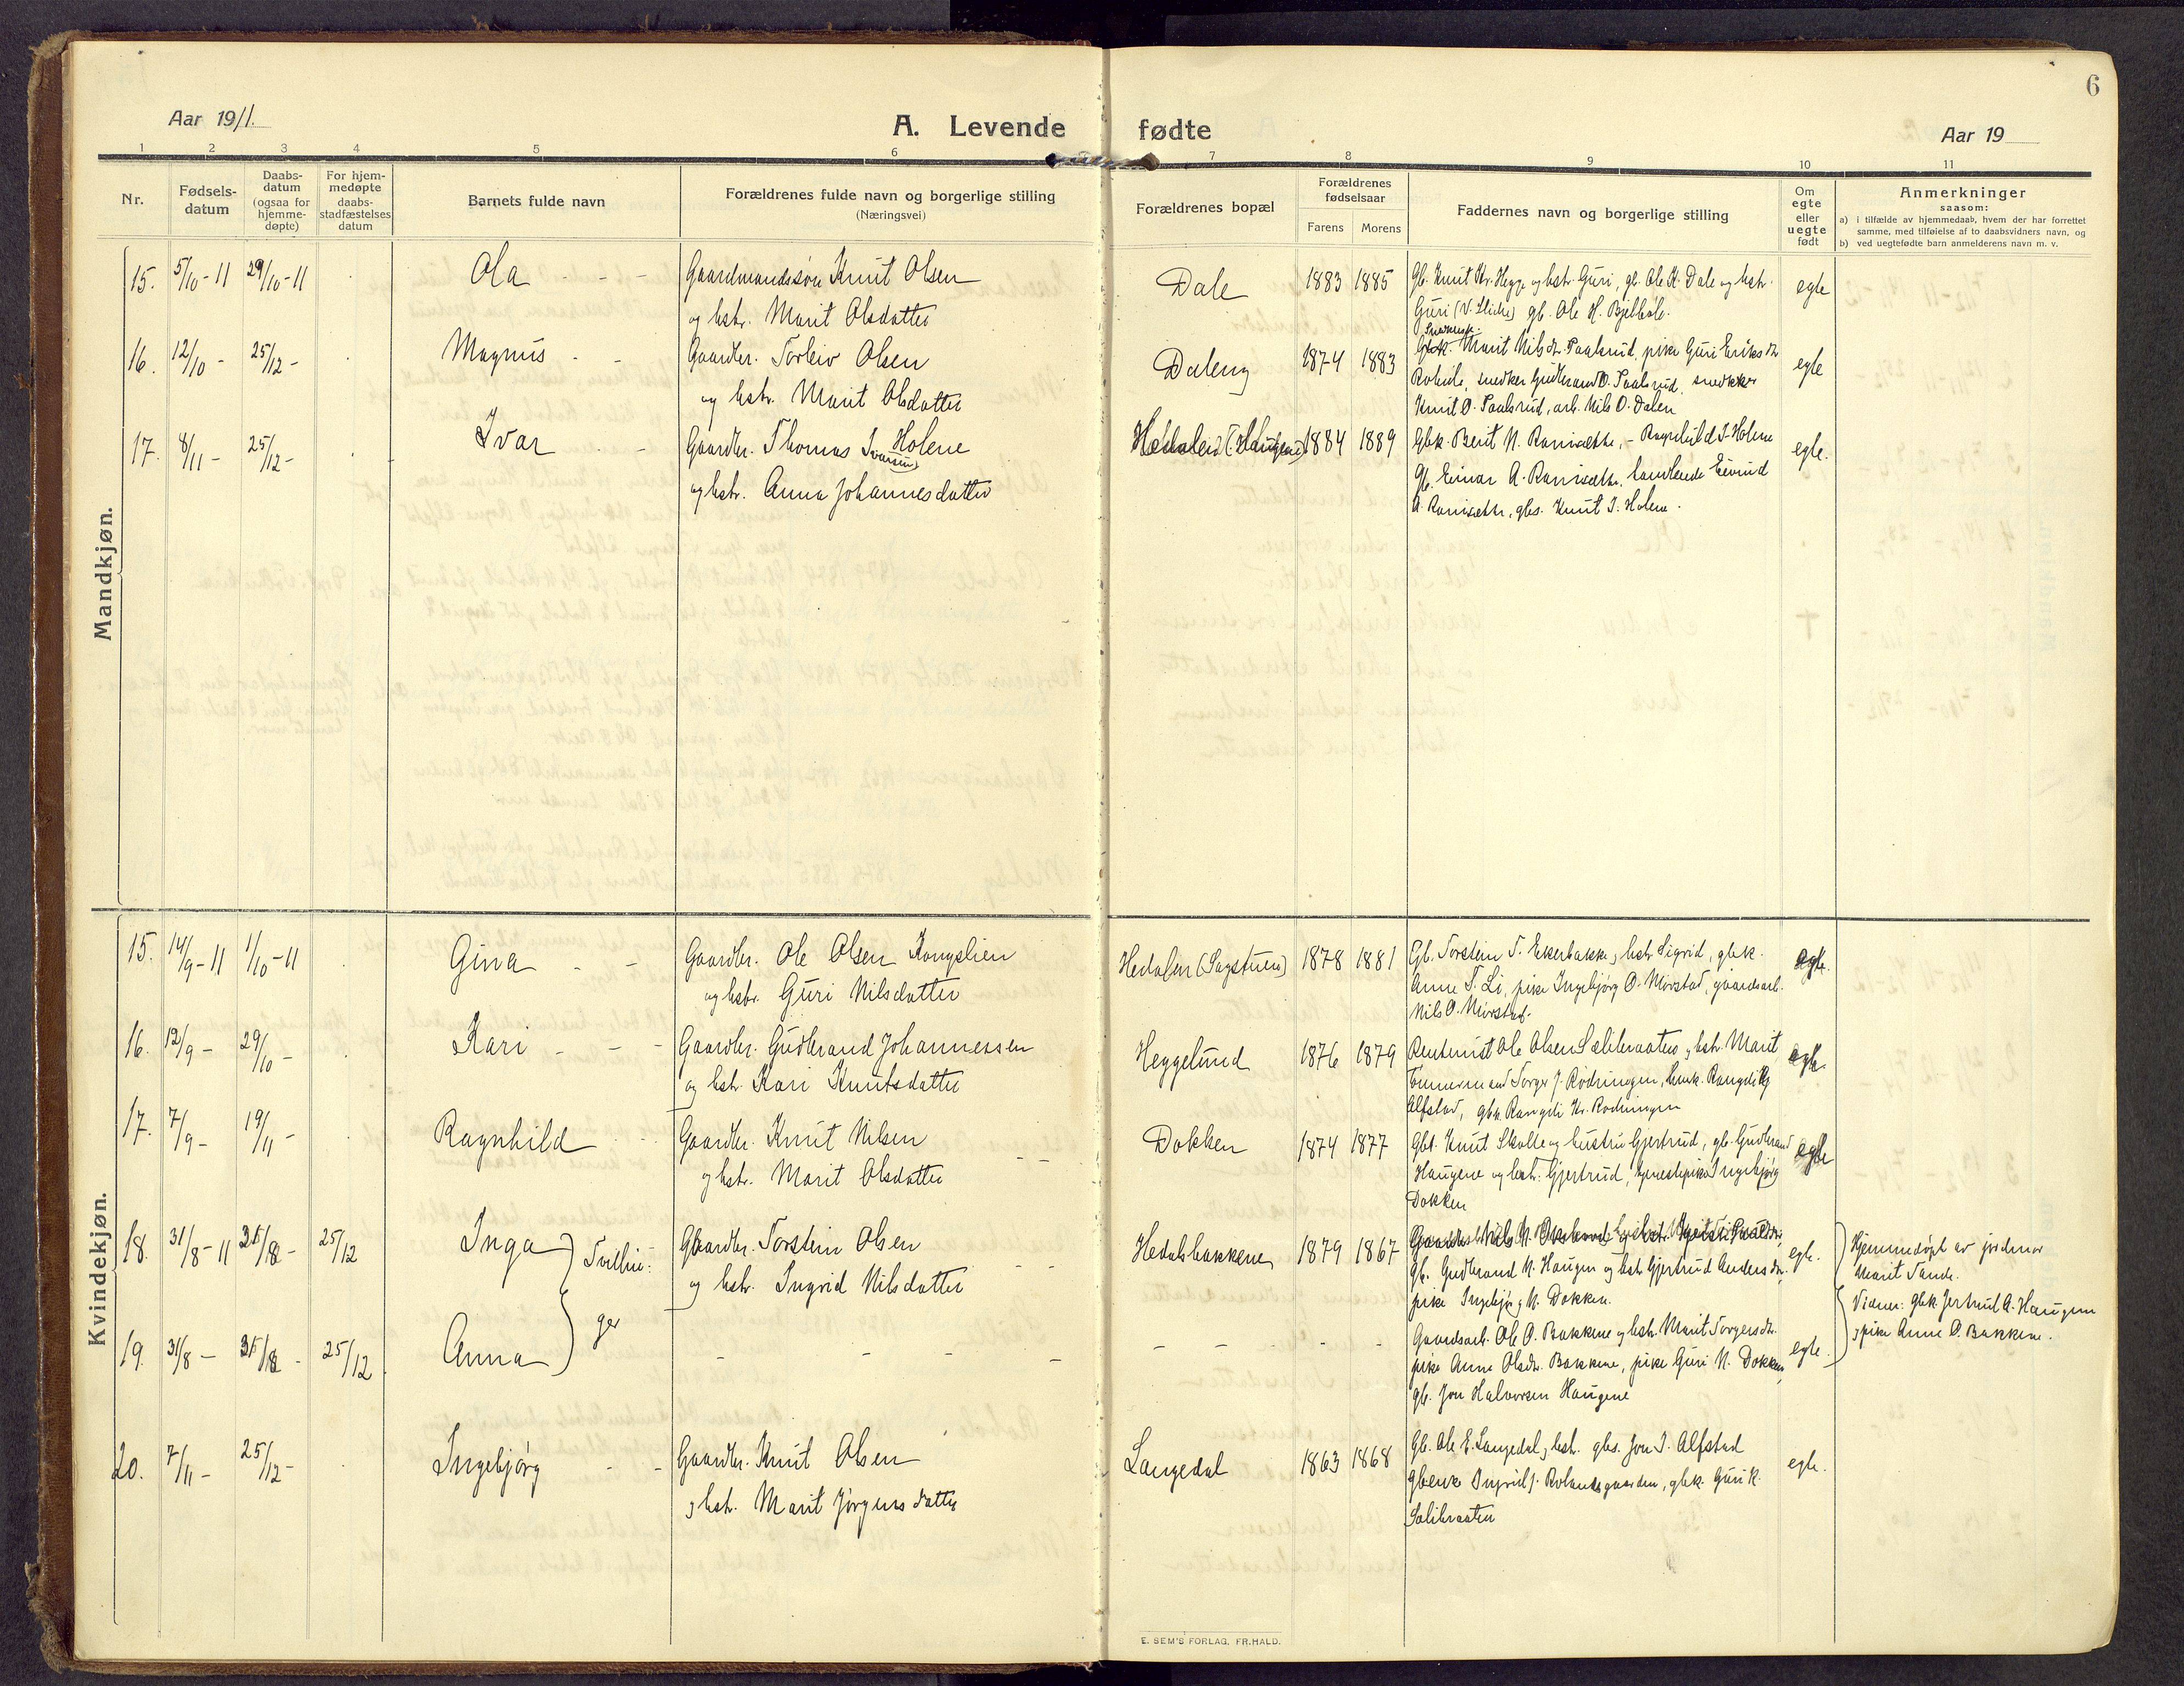 6
Aar 1911.
A. Levende fødte
Aar 19
1 2 3 4 5 6 7 8 9 10 11
Nr.
Fødsels-
datum
Daabs-
datum
(ogsaa for
hjemme-
døpte)
For hjem-
medøpte
daabs-
stadfæstelses
datum
Barnets fulde navn
Forældrenes fulde navn og borgerlige stilling
(Næringsvei)
Forældrenes bopæl
Forældrenes
fødselsaar
Farens Morens
Faddernes navn og borgerlige stilling
Om
egte
eller
uegte
født
Anmerkninger
saasom:
a) i tilfælde av hjemmedaab, hvem der har forrettet
samme, med tilføielse af to daabsvidners navn, og
b) ved uegtefødte barn anmelderens navn m. v.
Mandkjøn.
15. 5/10-11 29/10-11 Ola - - -
Gaardmandssøn Knut Olsen
og hstr. Marit Olsdatter
Dale 1883 1885
Gb. Knut Kr. Hegge og hstr. Guri, gb. Ole K. Dale og hstr.
Guri (V. Slidre) gb. Ole H. Bjelbøle.
egte
16. 12/10 - 25/12 - Magnus - -
Gaardbr. Torleiv Olsen
og hstr. Marit Olsdatter
Daleng 1874 1883
Marit Nilsdr. Paalsrud, pike Guri Eriksdr.
Robøle, snedker Gudbrand O. Paalsrud, snedker
Knut O. Paalsrud, arb. Nils O. Dalen
egte
17. 8/11 - 25/12 - Ivar - -
Gaardbr. Thomas Ivarsen Holene
og hstr. Anna Johannesdatter
Hedalen (Haugene) 1884 1889
Gbk. Berit N. Ranisæthr, - Ragnhild I. Holene
Gb. Einar A. Ranisæthr, handlende Eivind
A. Ranisæthr, gbs. Knut I. Holene.
egte.
Kvindekjøn.
15. 14/9-11 1/10-11 Gina - -
Gaardbr. Ole Olsen Kongslien
og hstr. Guri Nilsdatter
Hedalen (Sagstuen) 1878 1881
Gb. Torstein T. Ekerbakke, hstr. Sigrid, gbk.
Anne T. Li, pike Ingebjørg O. Mørstad, gaardsarb.
Nils O. Mørstad.
egte.
16. 12/9 - 29/10 - Kari - - -
Gaardbr. Gudbrand Johannessen
og hstr. Kari Knutsdatter
Heggelund 1876 1879
Rentenist Ole Olsen Sælibraaten, hstr. Marit
Tømmermand Torger J. Rodningen, Rangdi
Alfstad, gbk. Rangdi Kr. Rodningen
egte
17. 7/9 - 19/11 - Ragnhild - -
Gaardbr. Knut Nilsen
og hstr. Marit Olsdatter
Dokken 1874 1877
Gbr. Knut Skolle og hustru Gjertrud, gb. Gudbrand
Haugene og hstr. Gjertrud, tjenestepike Ingebjørg
Dokken
egte
18. 31/8-11 31/8 - 25/12 Inga Tvillin-
Gaardbr. Torstein Olsen
og hstr. Ingrid Nilsdatter
Hedalsbakkene 1879 1867
Gb. Gudbrand N. Haugen og hstr. Gjertrud Andersdr.
pike Ingebjørg N. Dokken.
egte.
Hjemmedøpt av jordmor
Marit Tande.
Vidner: gbk. Jertrud A. Haugen
og pike Anne O. Bakkene.
19. 31/8 - 31/8 - 25/12 Anna ger
- - - - -
Gaardsarb. Ole O. Bakkene og hstr. Marit Torgersdr.
pike Anne Olsdr. Bakkene, pike Guri N. Dokken
gb. Jon Halvorsen Haugene
egte.
20. 7/11 - 25/12 - Ingebjørg - -
Gaardbr. Knut Olsen
og hstr. Marit Jørgensdatter
Langedal 1863 1868
Gb. Ole E. Langedal, hstr. gbs. Jon I. Alfstad
Ingrid J. Rolandsgaarden, gbk. Guri K.
Sælibraaten
egte.
E. SEM'S FORLAG, FR.HALD.